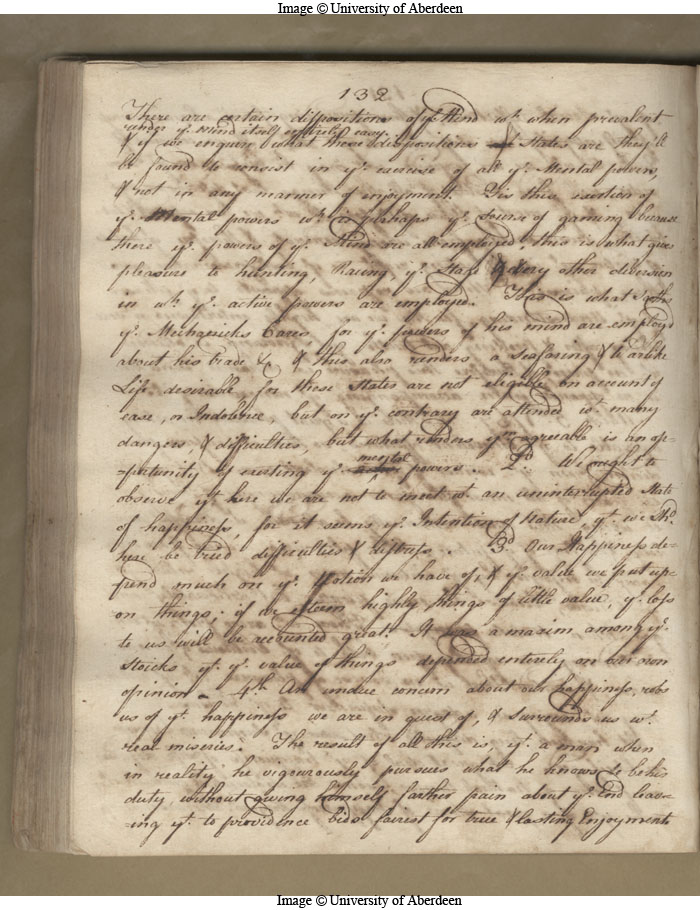 Image © University of Aberdeen
132
There are certain dispositions of yͤ Mind wͨ when prevalent
render yͤ mind itself entirely easy
& if we enquire what these dispositions & States are they'll
be found to consist in yͤ exercise of all yͤ Mental powers,
& not in any manner of enjoyment. 'Tis this exertion of
yͤ Mental powers wͨ is perhaps yͤ Source of gaming because
there yͤ powers of yͤ Mind are all employed, this is what gives
pleasure to hunting, Racing, yͤ & every other diversion
in wͨ yͤ active powers are employed. This is what sooths
yͤ Mechanicks Cares, for yͤ powers of his mind are employd
about his trade &c & this also renders a Seafaring &
Life desirable, for these States are not eligible on account of
ease, or Indolence, but on yͤ contrary are attended wͭ many
dangers, & difficulties, but what renders yͫ agreeable is an op-
=portunity of exerting yͤ mental powers. 2ͩ We ought to
observe yͭ here we are not to meet wͭ an uninterrupted State
of happiness, for it seems yͤ Intention of Nature, yͭ we Shͩ
here be tried difficulties & distress. 3ͩ Our Happiness de-
pend much on yͤ Notion we have of, & yͤ value we put up-
on things; if we esteem highly things of little value, yͤ loss
to us will be accounted great. It was a maxim among yͤ
Stoicks yͭ yͤ value of things depended entirely on our own
opinion. 4ͭͪ An undue concern about our happiness, robs
us of yͭ happiness we are in quest of, & Surrounds us wͭ
real miseries. The result of all this is, yͭ a man when
in reality he vigourously pursues what he knows to be his
duty without giving himself farther pain about yͤ End leav-
-ing yͭ to providence bids fairest for true & lasting Enjoyments
Image © University of Aberdeen